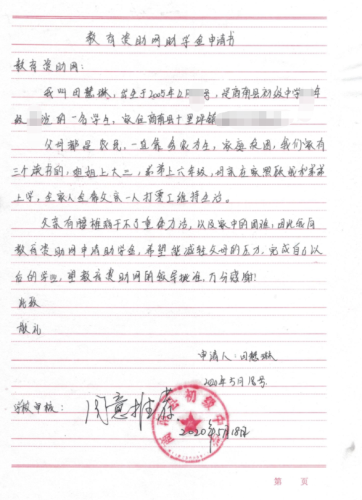 教育资助网助学金申请书
教育资助网：
我叫田慧琳，出生于2005年 月 号，是商南县初级中学 年
级 班的一名学生，家住商南县十里坪镇
父母都是农民，一直靠务农为生，家庭贫困，我们家有
三个读书的，姐姐上大三，弟弟上六年级，母亲在家照顾我和弟弟
上学，全家人全靠父亲一人打零工维持生活。
父亲有腰椎 干不了重体力活，以及家中的困难，因此我向
教育资助网申请助学金，希望能减轻父母的压力，完成自己以
后的学业，望教育资助网的领导批准，万分感谢！
此致
敬礼
申请人：田慧琳
2020年5月18号
学校审核： 同意推荐
初级中
2020年5月18日
第 页